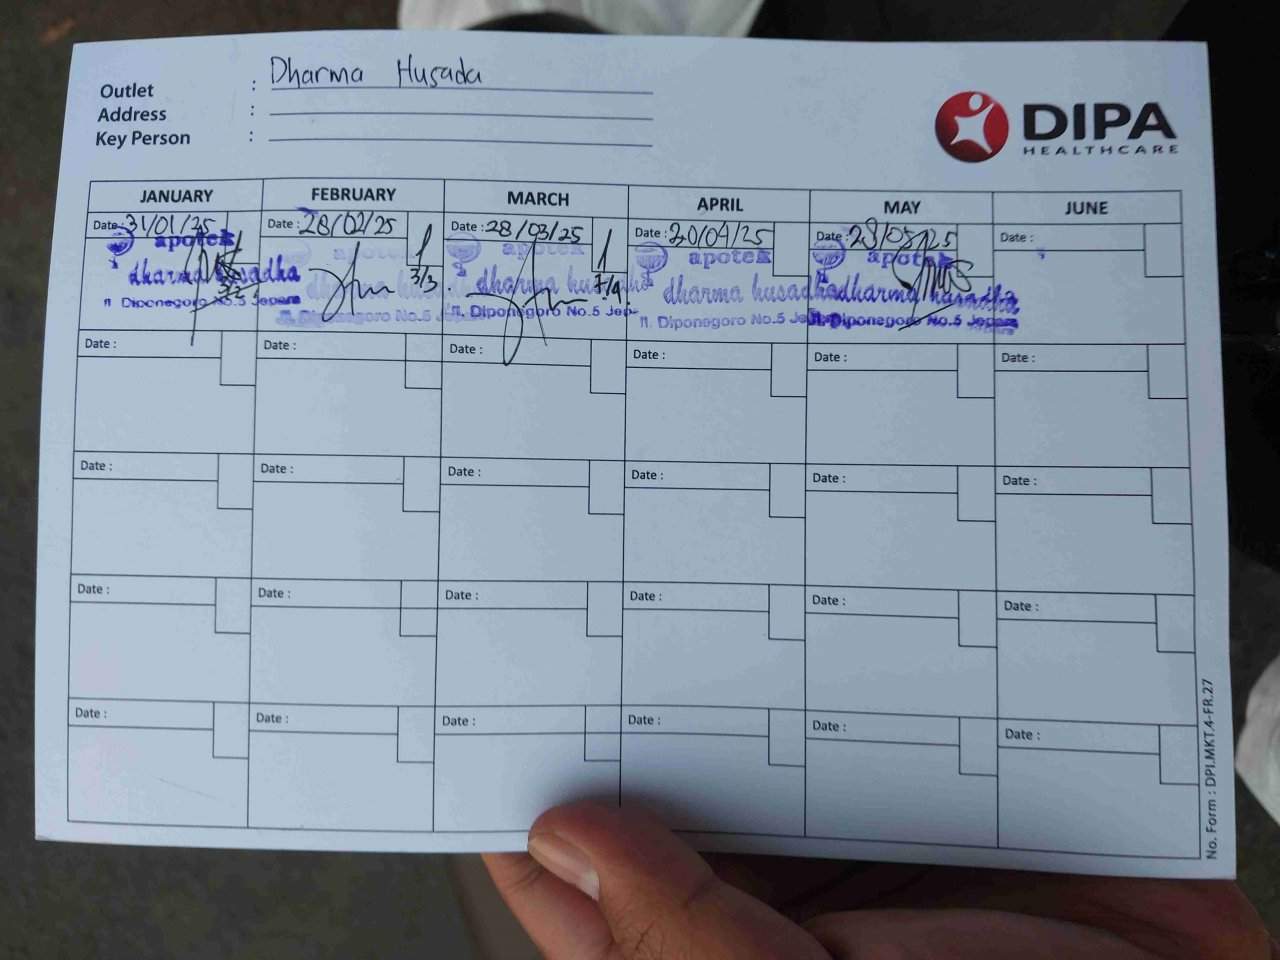 Outlet : Dharma Husada
Address :
Key Person :
DIPA
HEALTHCARE
JANUARY FEBRUARY MARCH APRIL MAY JUNE
Date : 31/01/25 Date : 28/02/25 Date : 28/03/25 Date : 30/04/25 Date : 28/05/25 Date :
1 1
3/3 7/4
apotek apotek apotek apotek
dharma husadha dharma husadha dharma husadha dharma husadha dharma husadha
Jl. Diponegoro No.5 Jepara Jl. Diponegoro No.5 Jepara Jl. Diponegoro No.5 Jep Jl. Diponegoro No.5 Je Jl. Diponegoro No.5 Jepara
Date : Date : Date : Date : Date : Date :
Date : Date : Date : Date : Date : Date :
Date : Date : Date : Date : Date : Date :
Date : Date : Date : Date : Date : Date :
No. Form : DPI.MKT.4-FR.27